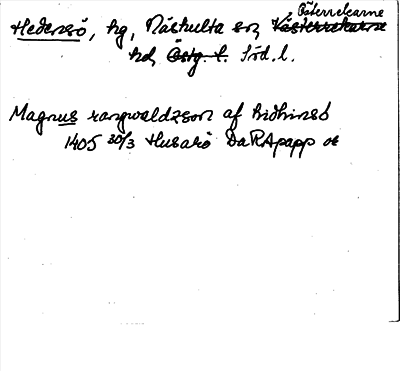 Hedensö, hg, Näshulta sn, Österrekarne Västerrekarne
hd, Östg. l. Söd. l.
Magnus rangwaldzson af hidhinsö
1405 30/3 Husarö DaRApapp or